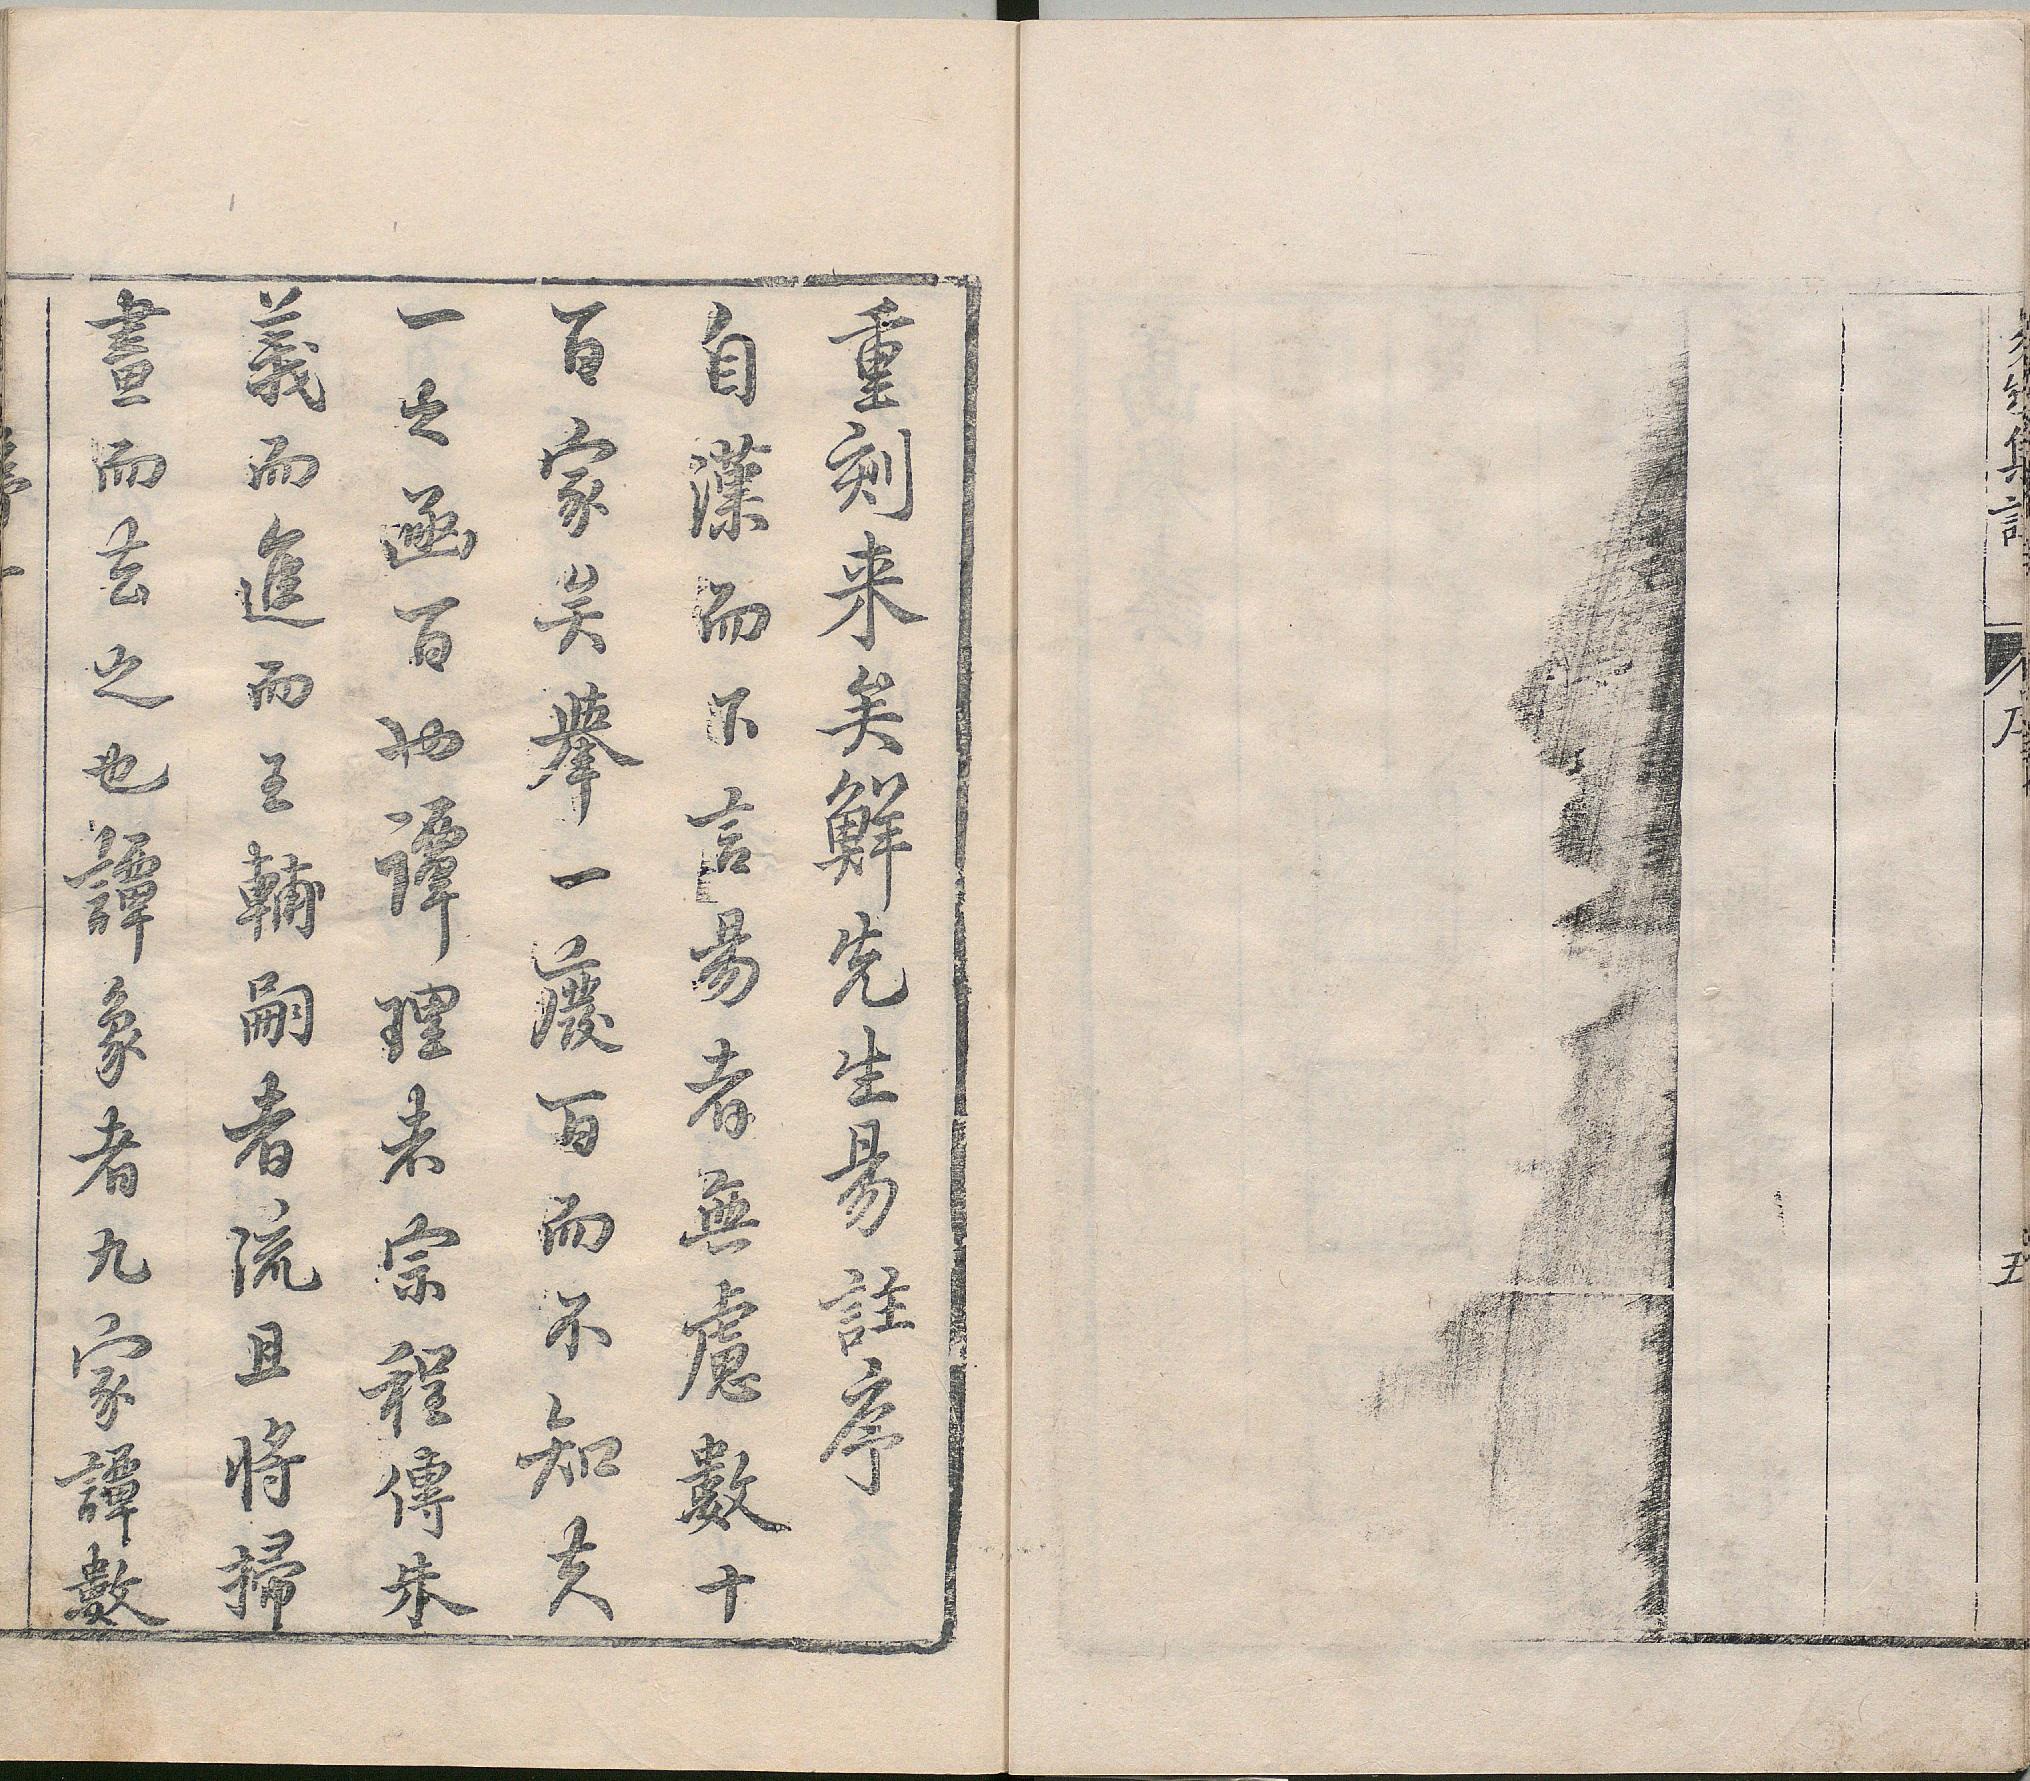 易經集註
序
五
重刻来矣鮮先生易註序
自漢而下言易者無慮數十
百家矣舉一廢百而不知夫
一之函百也譚理者宗程傳朱
義而進而王輔嗣者流且將掃
畫而去之也譚象者九家譚數